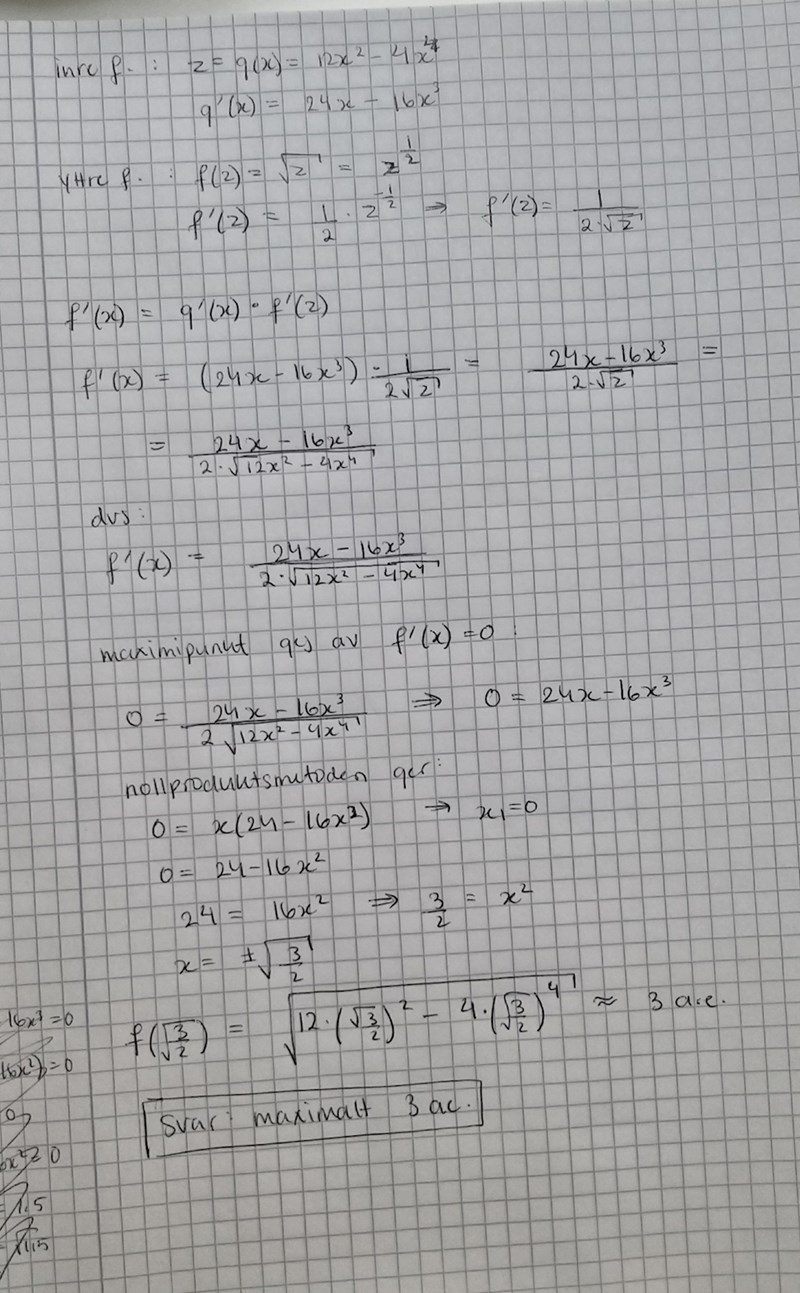 inre f. : z = g(x) = 12x² - 4x⁴
g'(x) = 24x - 16x³
yttre f. : f(z) = √z = z^(1/2)
f'(z) = 1/2 · z^(-1/2) ⇒ f'(z) = 1/(2·√z)
f'(x) = g'(x) · f'(z)
f'(x) = (24x - 16x³) · 1/(2√z) = (24x - 16x³)/(2·√z) =
= (24x - 16x³)/(2·√(12x² - 4x⁴))
dvs:
f'(x) = (24x - 16x³)/(2·√(12x² - 4x⁴))
maximipunkt ges av f'(x) = 0 :
0 = (24x - 16x³)/(2√(12x² - 4x⁴)) ⇒ 0 = 24x - 16x³
nollproduktsmetoden ger:
0 = x(24 - 16x²) ⇒ x₁ = 0
0 = 24 - 16x²
24 = 16x² ⇒ 3/2 = x²
x = ±√(3/2)
f(√(3/2)) = √(12·(√(3/2))² - 4·(√(3/2))⁴) ≈ 3 a.e.
Svar: maximalt 3 ae.
16x³ = 0
16x²) = 0
0
6x² = 0
= 1,5
√1,5